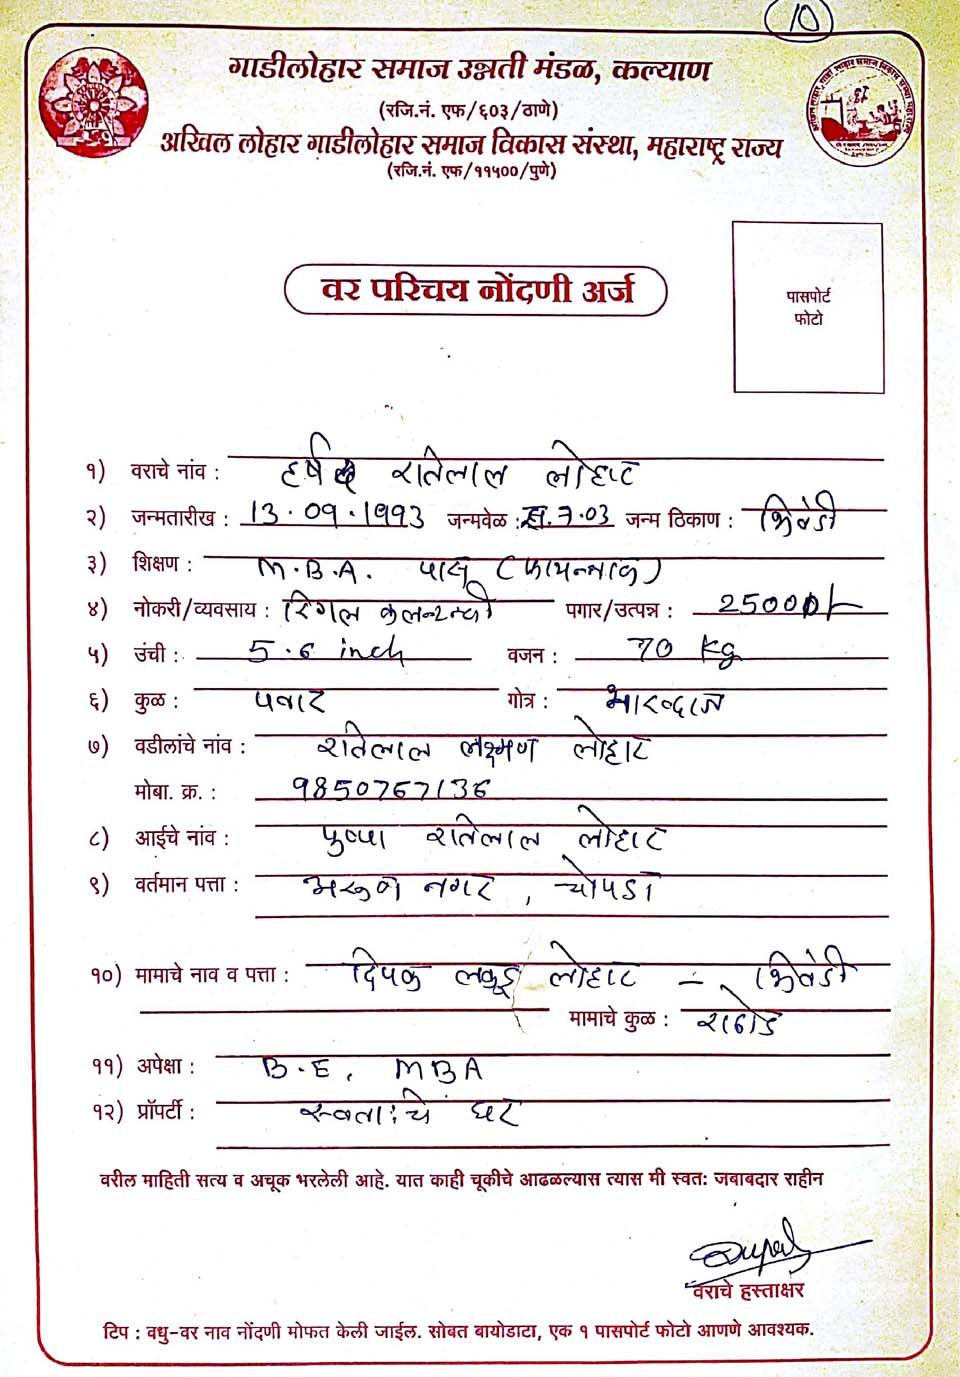 10
गाडीलोहार समाज उन्नती मंडळ, कल्याण
(रजि.नं. एफ/६०३/ठाणे)
अखिल लोहार गाडीलोहार समाज विकास संस्था, महाराष्ट्र राज्य
(रजि.नं. एफ/११५००/पुणे)
पासपोर्ट
फोटो
वर परिचय नोंदणी अर्ज
१) वराचे नांव : हर्षल रातिलाल लोहार
२) जन्मतारीख : 13.09.1993 जन्मवेळ : स.7.03 जन्म ठिकाण : भिवंडी
३) शिक्षण : M.B.A. पास (फायनान्स)
४) नोकरी/व्यवसाय : पगार/उत्पन्न : 25000/-
५) उंची : 5.6 inch वजन : 70 kg
६) कुळ : पवार गोत्र : भारव्दाज
७) वडीलांचे नांव : रातिलाल लक्ष्मण लोहार
मोबा. क्र. : 9850767136
८) आईचे नांव : पुष्पा रातिलाल लोहार
९) वर्तमान पत्ता : नगर, चोपडा
१०) मामाचे नाव व पत्ता : दिपक लोहार - भिवंडी
मामाचे कुळ : राठोड
११) अपेक्षा : B.E, MBA
१२) प्रॉपर्टी : स्वताःचे घर
वरील माहिती सत्य व अचूक भरलेली आहे. यात काही चूकीचे आढळल्यास त्यास मी स्वतः जबाबदार राहीन
वराचे हस्ताक्षर
टिप : वधु-वर नाव नोंदणी मोफत केली जाईल. सोबत बायोडाटा, एक १ पासपोर्ट फोटो आणणे आवश्यक.